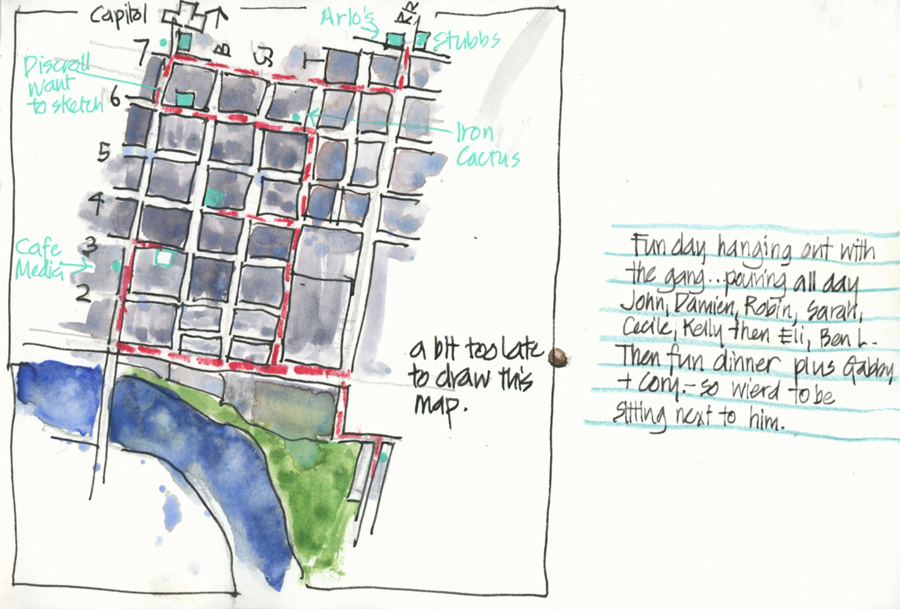 Capitol
Arlo's
RR
Stubbs
7
B
SJ
T
Discroll
want
to sketch
6
Iron
Cactus
5
4
Cafe
Media
3
2
a bit too late
to draw this
map.
Fun day hanging out with
the gang...pouring all day
John, Damien, Robin, Sarah,
Cecile, Kelly then Eli, Ben L.
Then fun dinner plus Gabby
+ Cory - so wierd to be
sitting next to him.